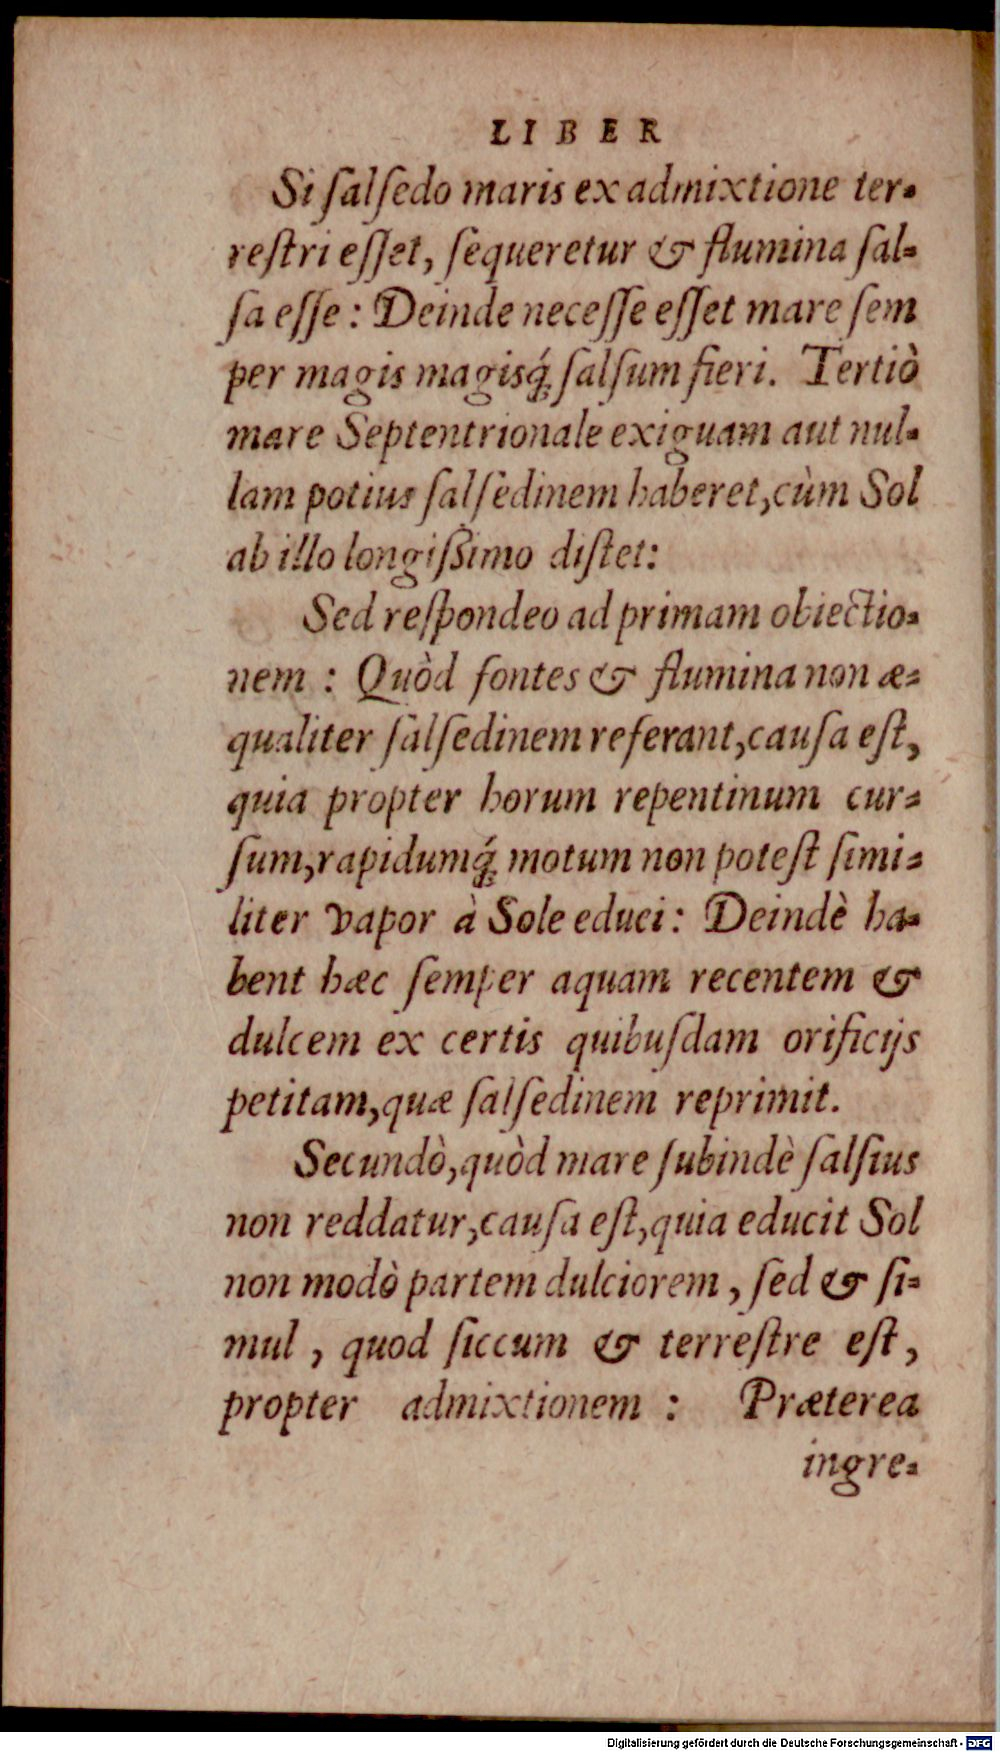 LIBER
Si ſalſedo maris ex admixtione ter-
reſtri eſſet, ſequeretur & flumina ſal-
ſa eſſe: Deinde neceſſe eſſet mare ſem
per magis magisq́; ſalſum fieri. Tertiò
mare Septentrionale exiguam aut nul-
lam potius ſalſedinem haberet, cùm Sol
ab illo longiſsimo diſtet:
Sed reſpondeo ad primam obiectio-
nem: Quòd fontes & flumina non æ-
qualiter ſalſedinem referant, cauſa eſt,
quia propter horum repentinum cur-
ſum, rapidumq́; motum non poteſt ſimi-
liter vapor à Sole educi: Deindè ha-
bent hæc ſemper aquam recentem &
dulcem ex certis quibuſdam orificijs
petitam, quæ ſalſedinem reprimit.
Secundò, quòd mare ſubindè ſalſius
non reddatur, cauſa eſt, quia educit Sol
non modò partem dulciorem, ſed & ſi-
mul, quod ſiccum & terreſtre eſt,
propter admixtionem: Præterea
ingre-
Digitalisierung gefördert durch die Deutsche Forschungsgemeinschaft - DFG